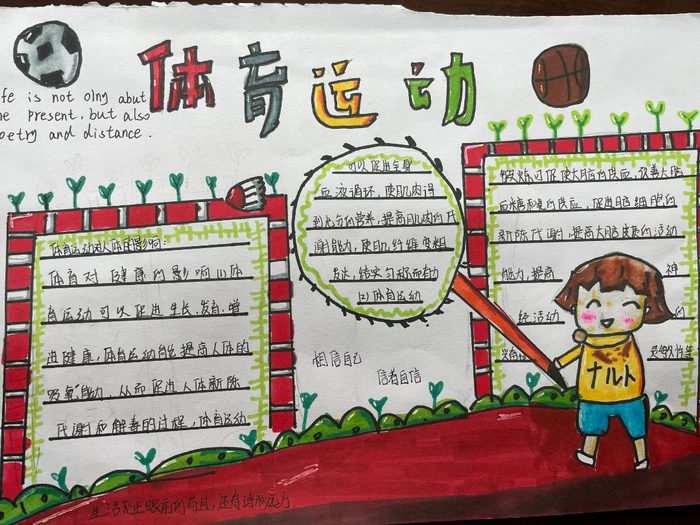 体育运动
fe is not olng abut
e present, but also
oetry and distance.
体育运动对人体的影响:
体育对健康的影响以体
育运动可以促进生长.发育.增
进健康,体育运动能提高人体的
能力,从而促进人体新陈
代谢和解毒的过程,体育运动
可以促进全身
血液循环,使肌肉得
到充分的营养,提高肌肉的代
谢能力,使肌纤维变粗
结实匀称而有力
(2)体育运动
相信自己
信者自信
锻炼可促使大脑的反应,改善大脑
新陈代谢,提高大脑皮质的活动
能力,提高 神
统活动
ナルト
生活不止眼前的苟且,还有诗和远方